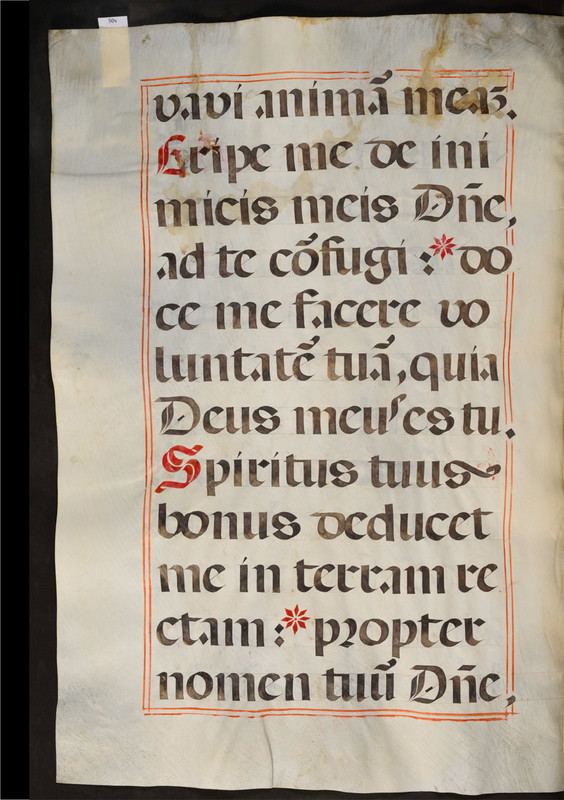 50v
vavi animã meaʒ.
Eripe me de ini
micis meis Dñe,
ad te cõfugi :* do
ce me facere vo
luntatẽ tuã, quia
Deus meus es tu.
Spiritus tuus~
bonus deducet
me in terram re
ctam :* propter
nomen tuũ Dñe,